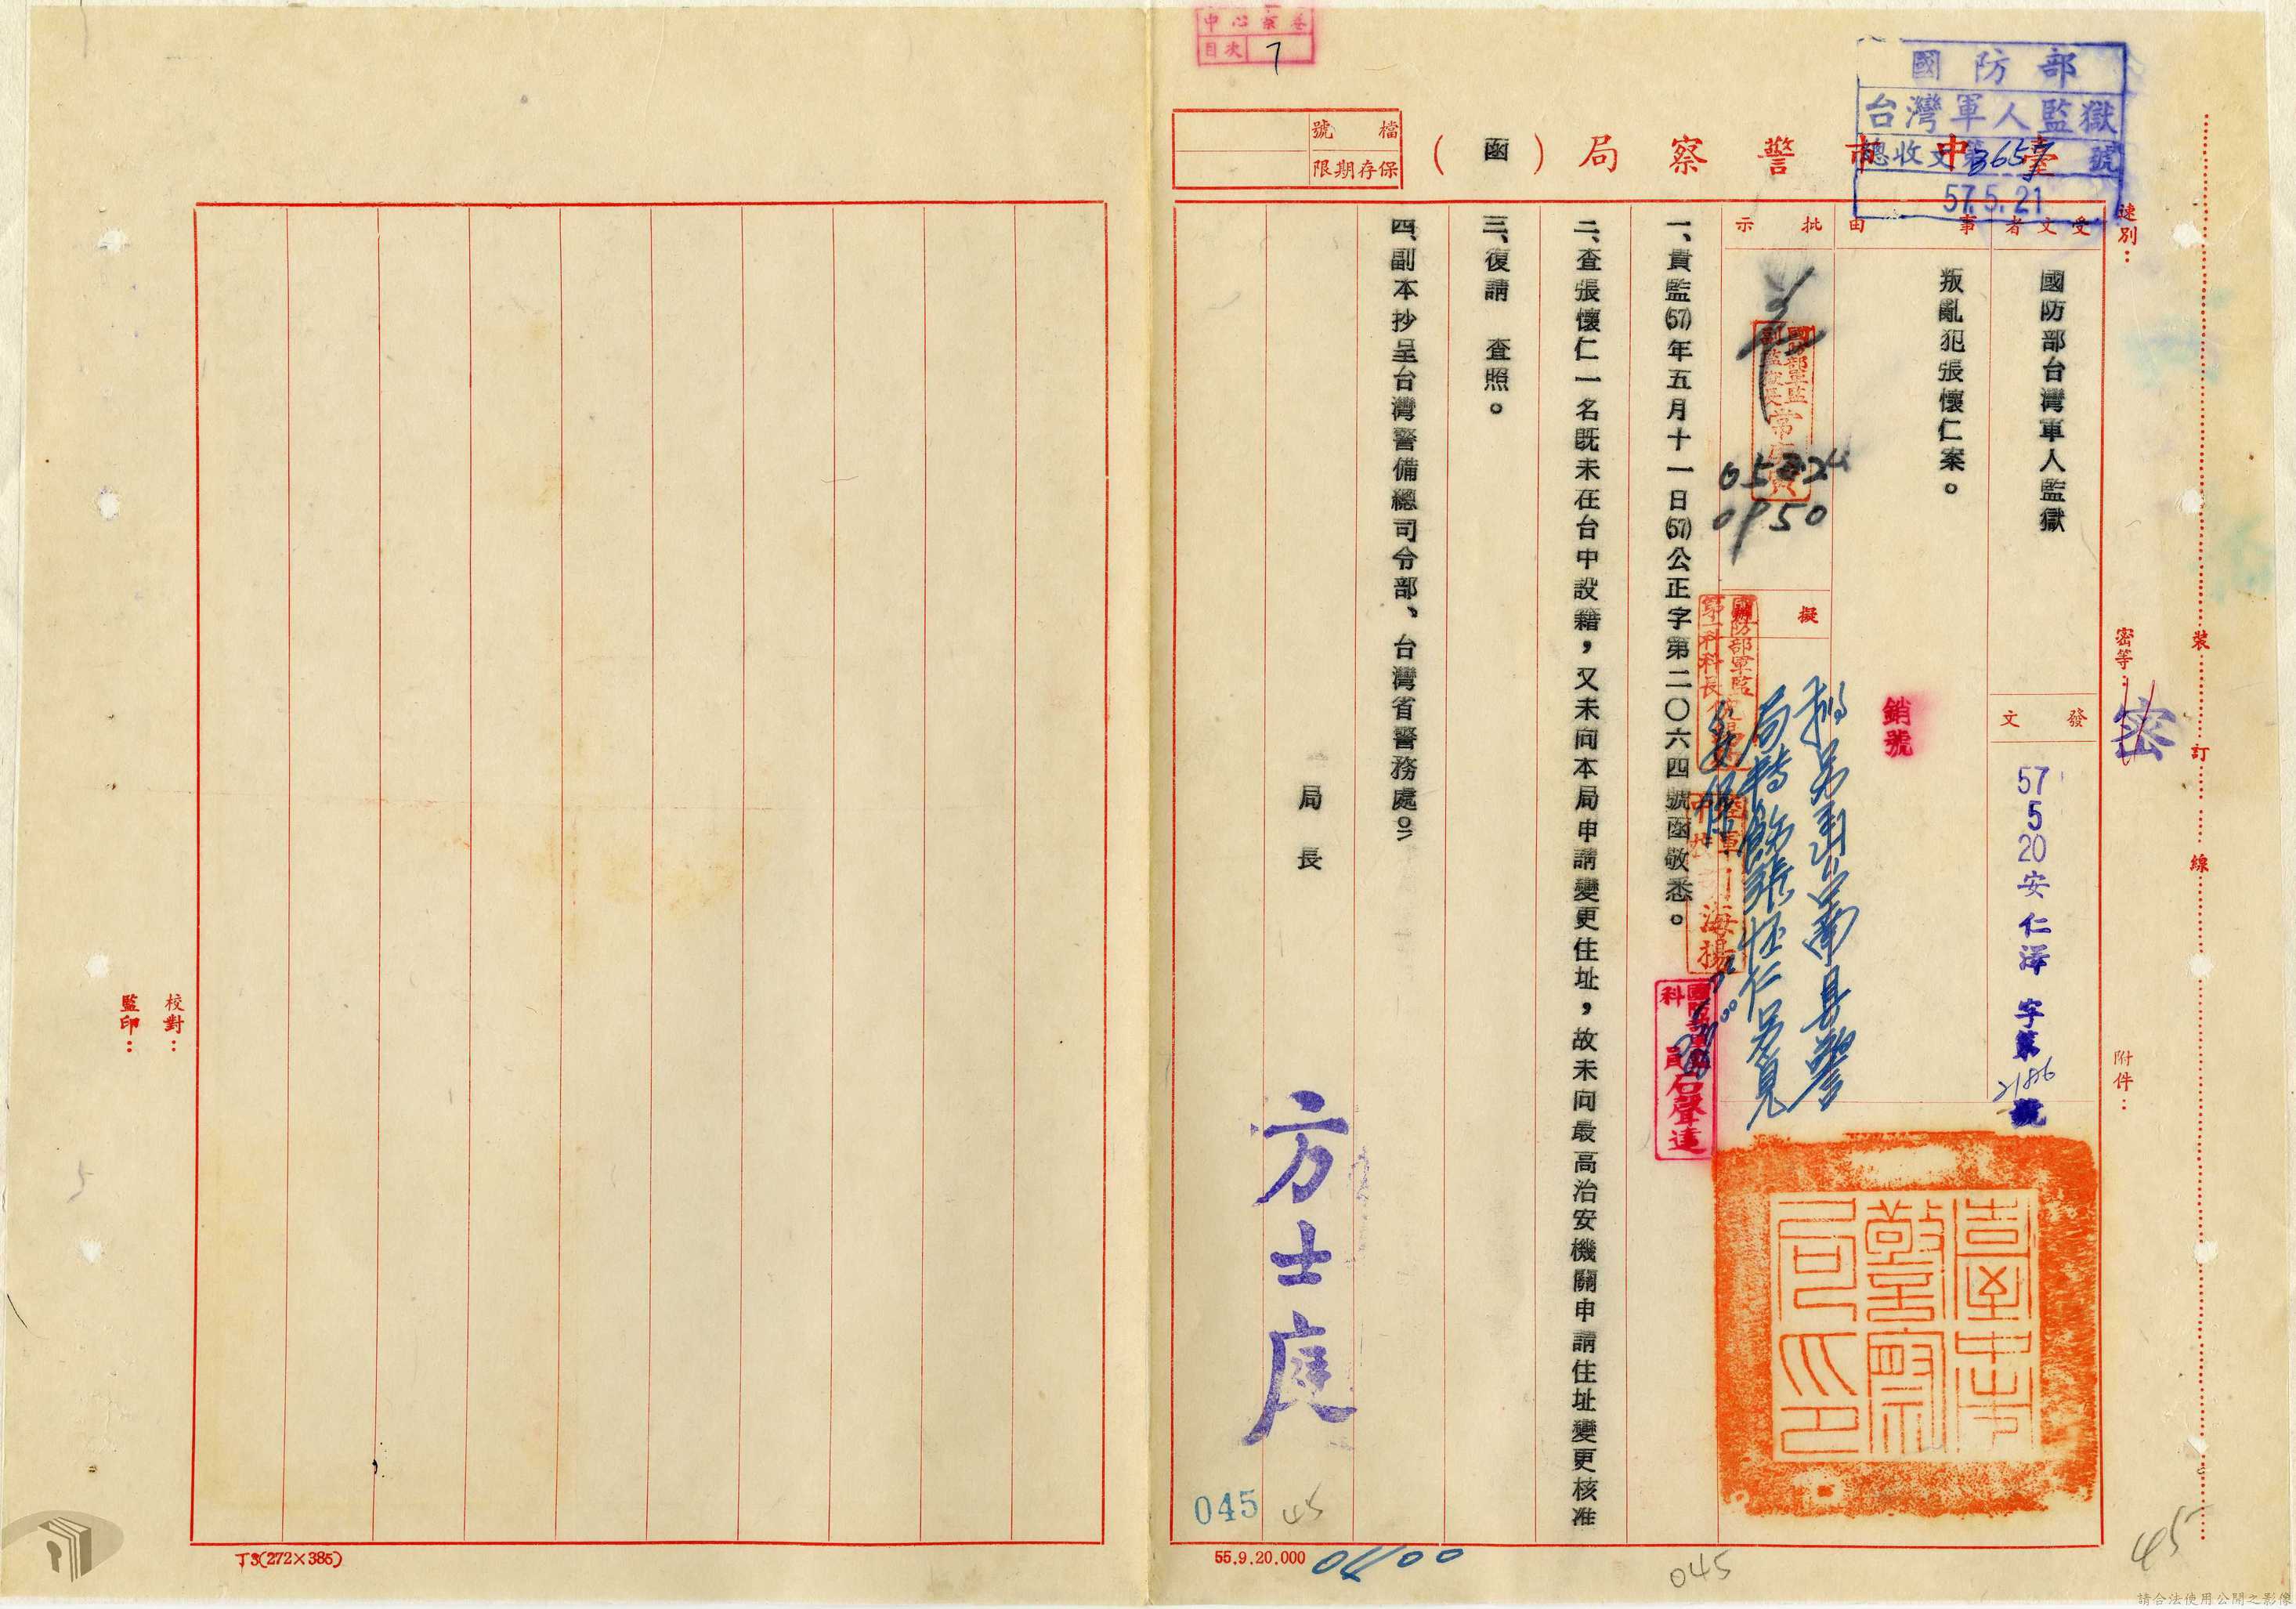 中心京卷
目次 7
國防部
台灣軍人監獄
總收文第3657號
57.5.21
臺中市警察局（函）
檔號
保存期限
速別：
密等：密
附件：
裝訂線
受文者
國防部台灣軍人監獄
發文
57 5 20 安仁澤字第 號
事由
叛亂犯張懷仁案。
銷號
批示
0522
0950
擬
一、貴監(57)年五月十一日(57)公正字第二〇六四號函敬悉。
二、查張懷仁一名既未在台中設籍，又未向本局申請變更住址，故未向最高治安機關申請住址變更核准
三、復請　查照。
四、副本抄呈台灣警備總司令部、台灣省警務處。
局長
方士庭
臺中市警察局印
石聲遠
海揚
045
45
55.9.20.000
045
45
校對：
監印：
丁3(272×385)
請合法使用公開之影像